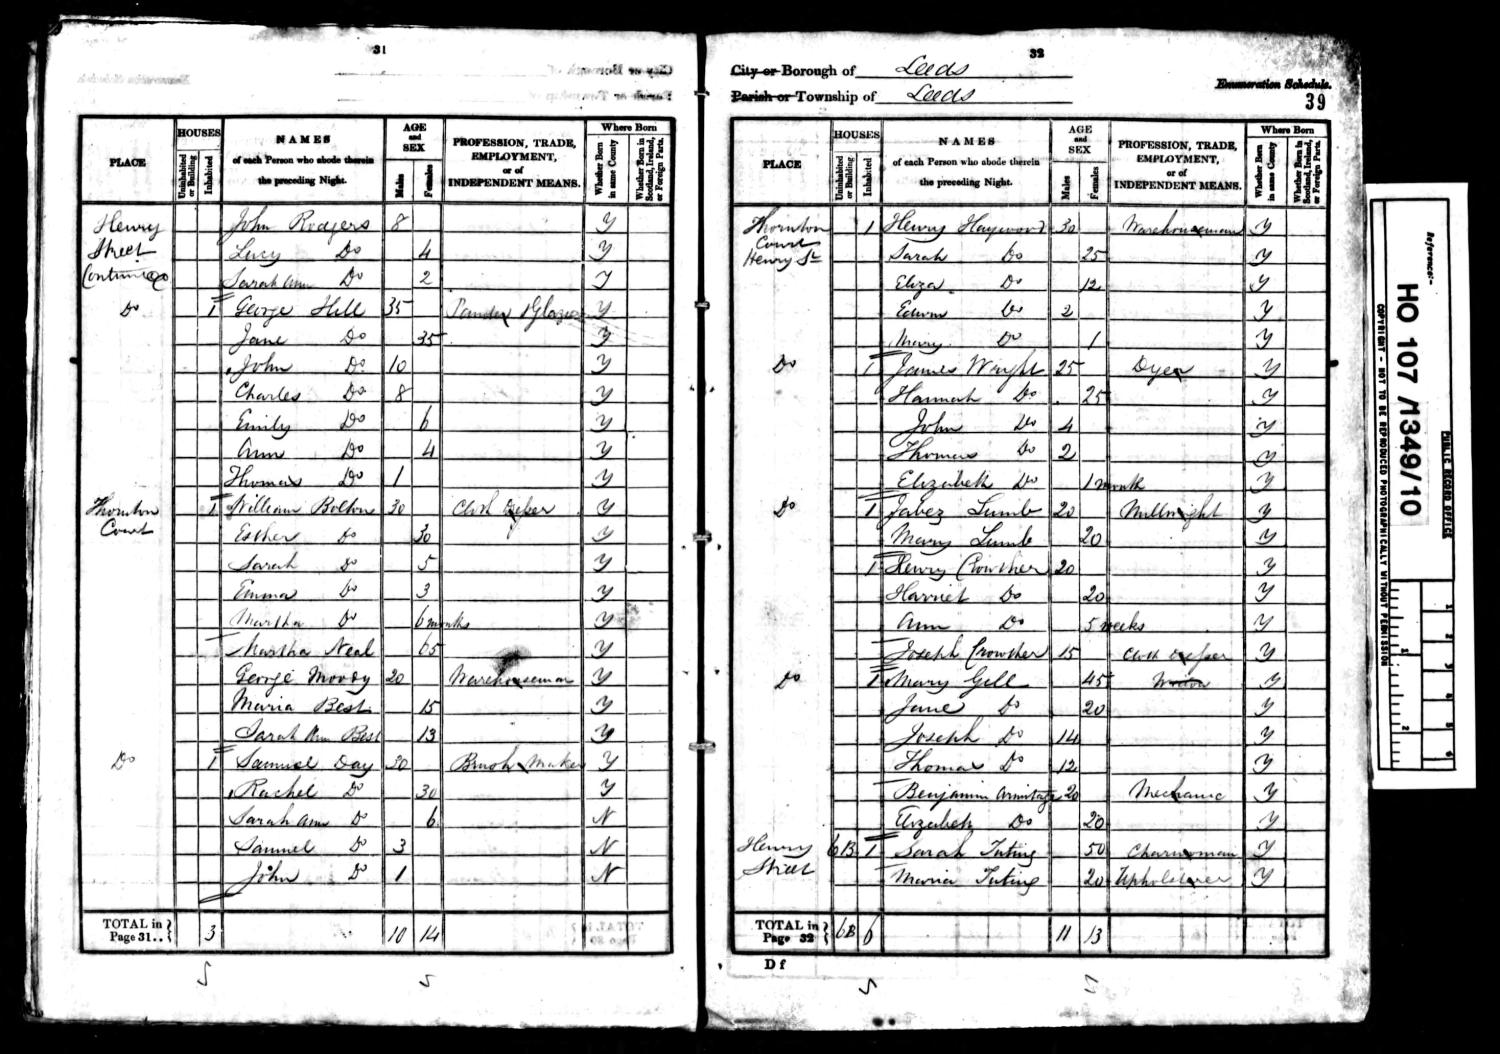 31
PLACE
HOUSES
Uninhabited or Building
Inhabited
NAMES
of each Person who abode therein
the preceding Night.
AGE and SEX
Males
Females
PROFESSION, TRADE, EMPLOYMENT, or of INDEPENDENT MEANS.
Where Born
Whether Born in same County
Whether Born in Scotland, Ireland, or Foreign Parts.
Henry John Rodgers 8 Y
Street Lucy Do 4 Y
Continued Sarah Ann Do 2 Y
Do 1 George Hill 35 & Glazier Y
Jane Do 35 Y
John Do 10 Y
Charles Do 8 Y
Emily Do 6 Y
Ann Do 4 Y
Thomas Do 1 Y
Thornton 1 William Bolton 30 Cloth Dresser Y
Court Esther Do 30 Y
Sarah Do 5 Y
Emma Do 3 Y
Martha Do 6 months Y
Martha Neal 65 Y
George Moody 20 Warehouseman Y
Maria Best 15 Y
Sarah Ann Best 13 Y
Do 1 Samuel Day 30 Brush Maker Y
Rachel Do 30 Y
Sarah Ann Do 6 N
Samuel Do 3 N
John Do 1 N
TOTAL in Page 31.. 3 10 14
32
City or Borough of Leeds
Parish or Township of Leeds
Enumeration Schedule.
39
PLACE
HOUSES
Uninhabited or Building
Inhabited
NAMES
of each Person who abode therein
the preceding Night.
AGE and SEX
Males
Females
PROFESSION, TRADE, EMPLOYMENT, or of INDEPENDENT MEANS.
Where Born
Whether Born in same County
Whether Born in Scotland, Ireland, or Foreign Parts.
Thornton 1 Henry Haywood 30 Warehouseman Y
Court
Henry St Sarah Do 25 Y
Eliza Do 12 Y
Edwin Do 2 Y
Mary Do 1 Y
Do 1 James Wright 25 Dyer Y
Hannah Do 25 Y
John Do 4 Y
Thomas Do 2 Y
Elizabeth Do 1 month Y
Do 1 Jabez Lumb 20 Millwright Y
Mary Lumb 20 Y
1 Henry Crowther 20 Y
Harriet Do 20 Y
Ann Do 5 weeks Y
Joseph Crowther 15 Cloth Dresser Y
Do 1 Mary Gill 45 Widow Y
Jane Do 20 Y
Joseph Do 14 Y
Thomas Do 12 Y
Benjamin Armitage 20 Mechanic Y
Elizabeth Do 20 Y
Henry 6B 1 Sarah Tuting 50 Charwoman Y
Street Maria Tuting 20 Upholsterer Y
TOTAL in Page 32 6B 6 11 13
D f
Reference:-
HO 107/1349/10
COPYRIGHT - NOT TO BE REPRODUCED PHOTOGRAPHICALLY WITHOUT PERMISSION
PUBLIC RECORD OFFICE